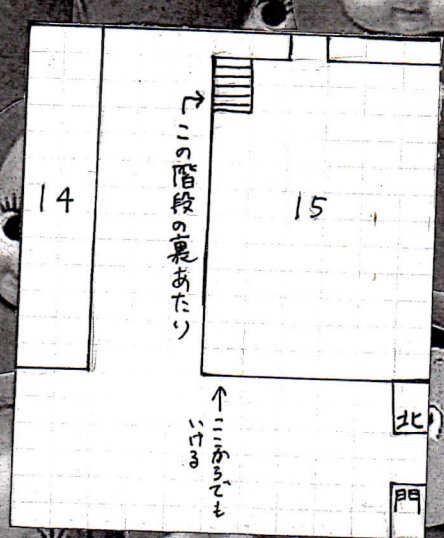 14
15
この階段の裏あたり
ここからでも
いける
北
門